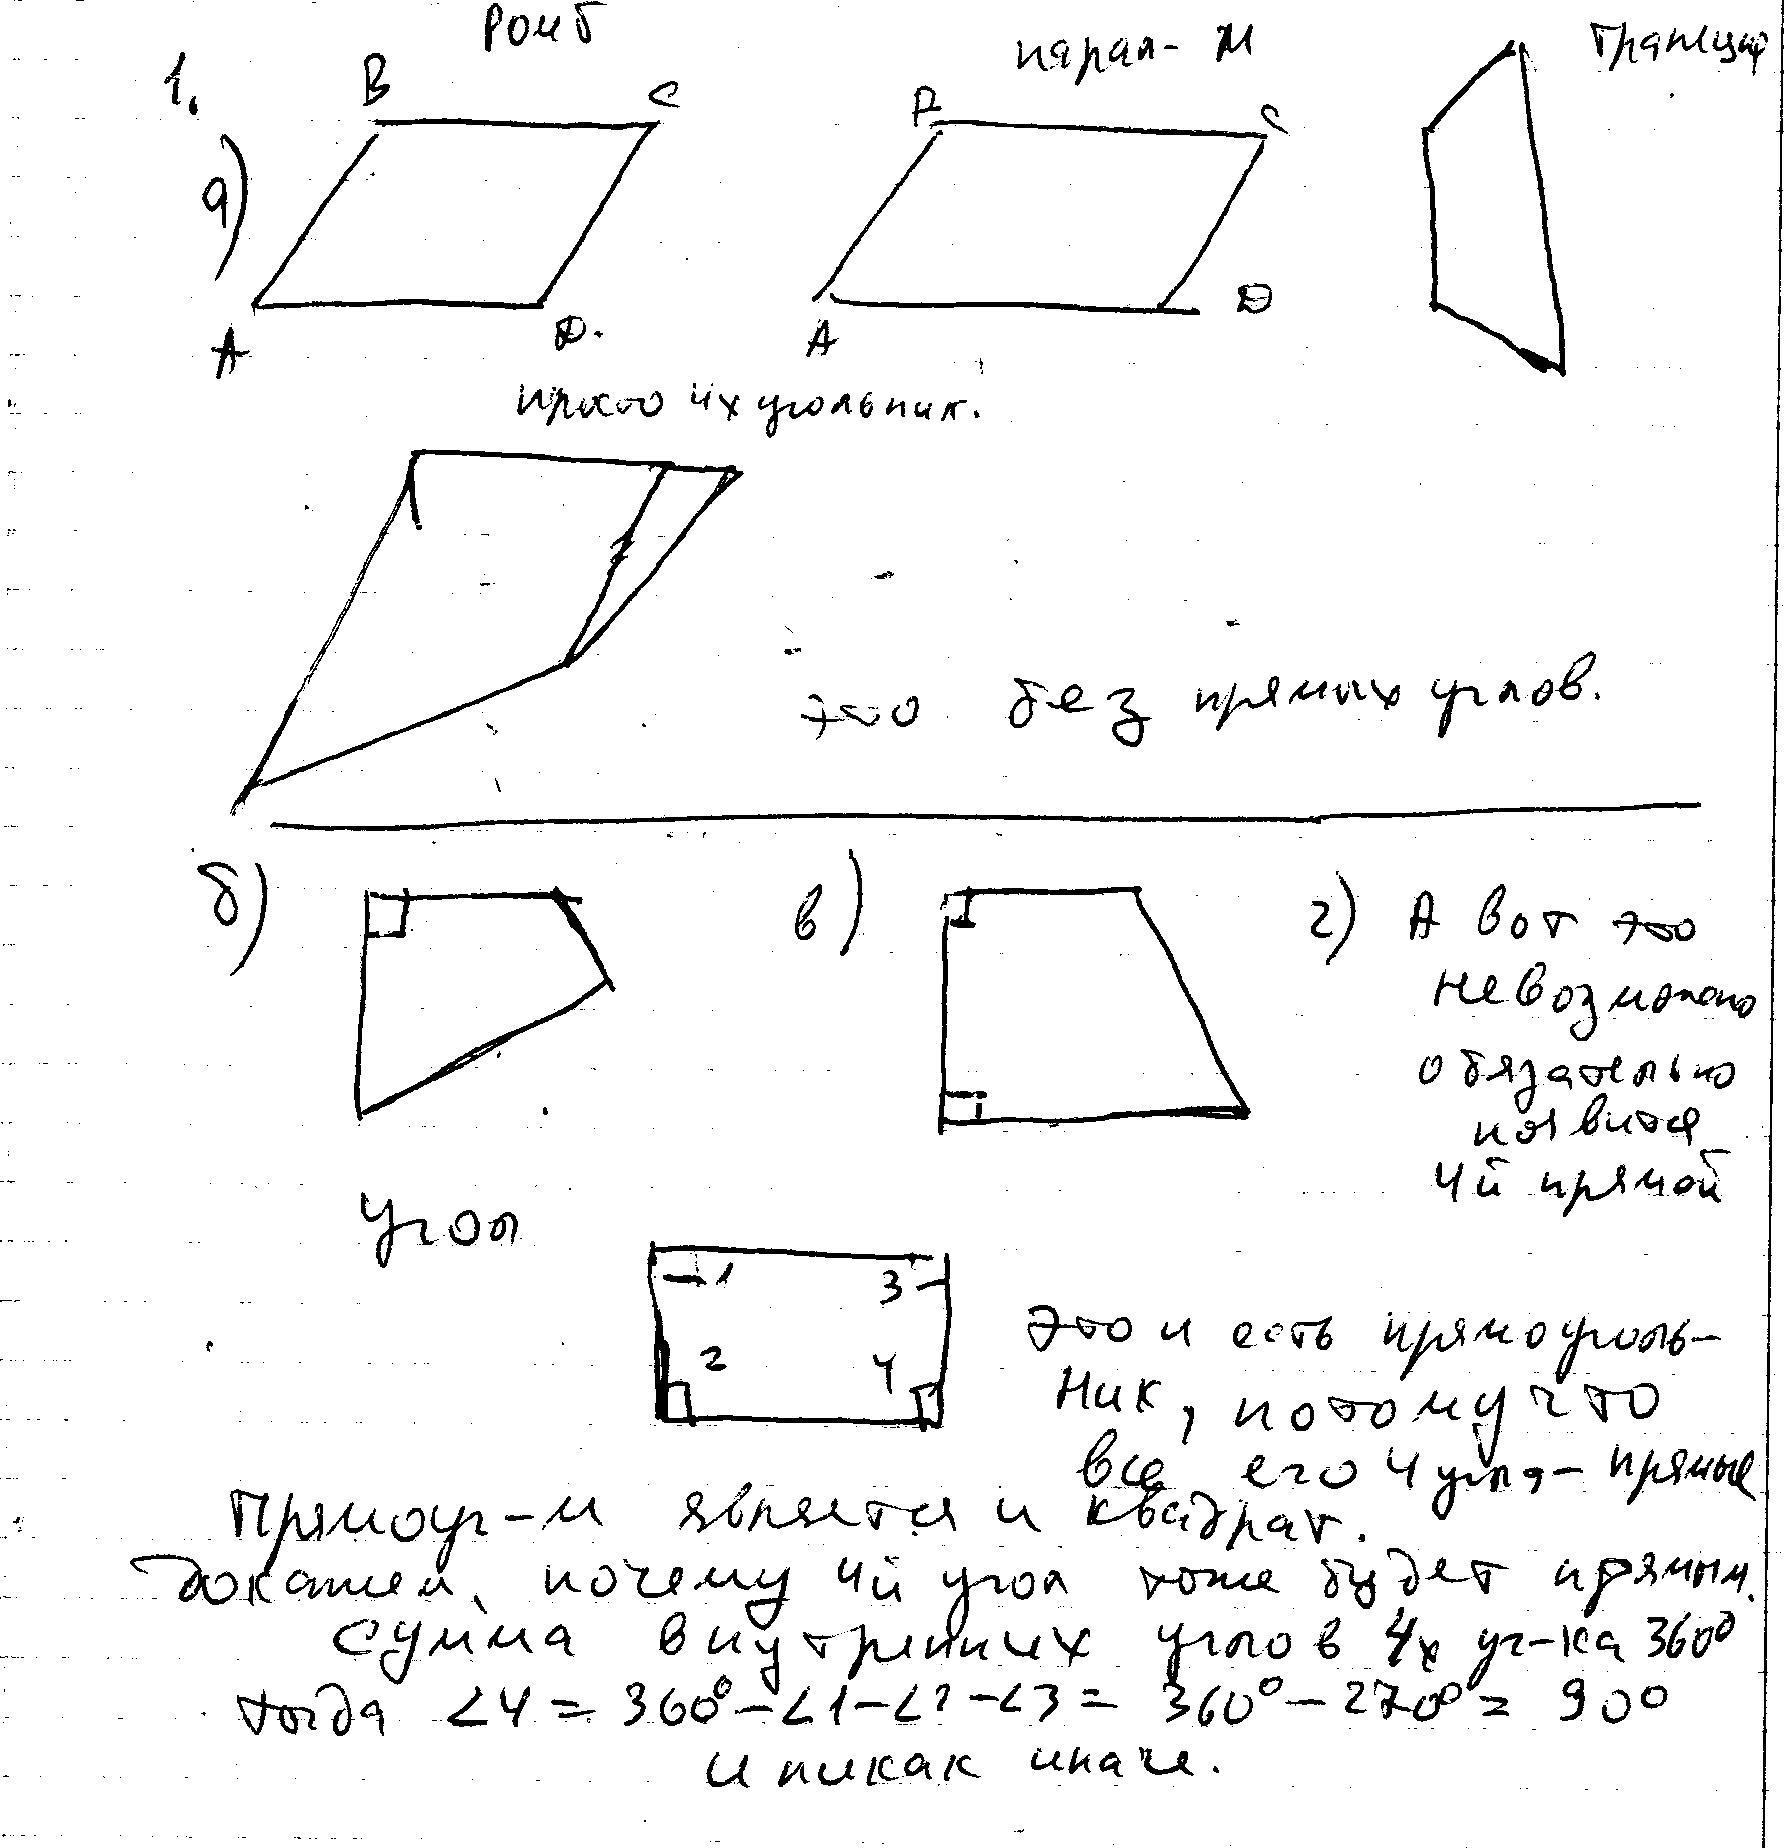 Ромб
парал-м
трапеция
1.
а)
B
C
A
D.
B
C
A
D
просто 4х угольник.
это без прямых углов.
б)
в)
г) А вот это
невозможно
обязательно
появится
4й прямой
угол
1
3
2
4
это и есть прямоуголь-
ник, потому что
все его 4 угла - прямые
Прямоуг-м является и квадрат.
Докажем, почему 4й угол тоже будет прямым.
Сумма внутренних углов 4х уг-ка 360°
тогда ∠4 = 360° - ∠1 - ∠2 - ∠3 = 360° - 270° = 90°
и никак иначе.